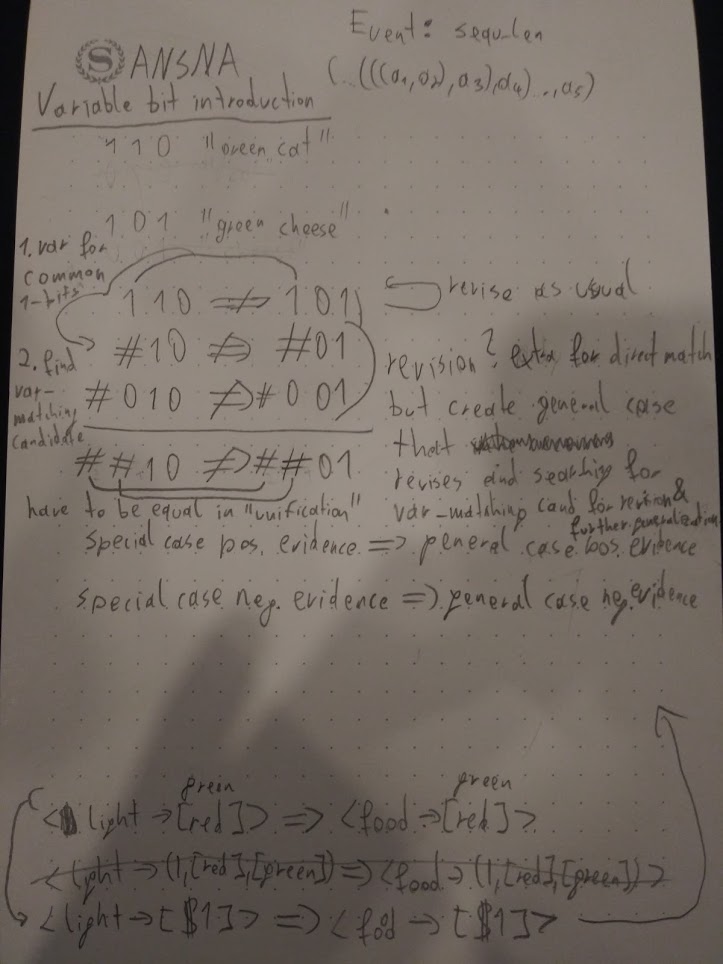 S ANSNA
Event: sequ_len
(...(((a1,a2),a3),a4)...,a5)
Variable bit introduction
110 "green cat"
101 "green cheese"
1. var for
common
1-bits
110 => 101
revise as usual
#10 => #01
2. find
var-
matching
candidate
#010 => #001
##10 => ##01
revision? extra for direct match
but create general case
that
revises and searching for
var-matching cand for revision &
further generalization
have to be equal in "unification"
special case pos. evidence => general case pos. evidence
special case neg. evidence => general case neg. evidence
green green
<light → [red]> => <food → [red]>
<light → (1,[red],[green]) => <food → (1,[red],[green])>
<light → [$1]> => <food → [$1]>